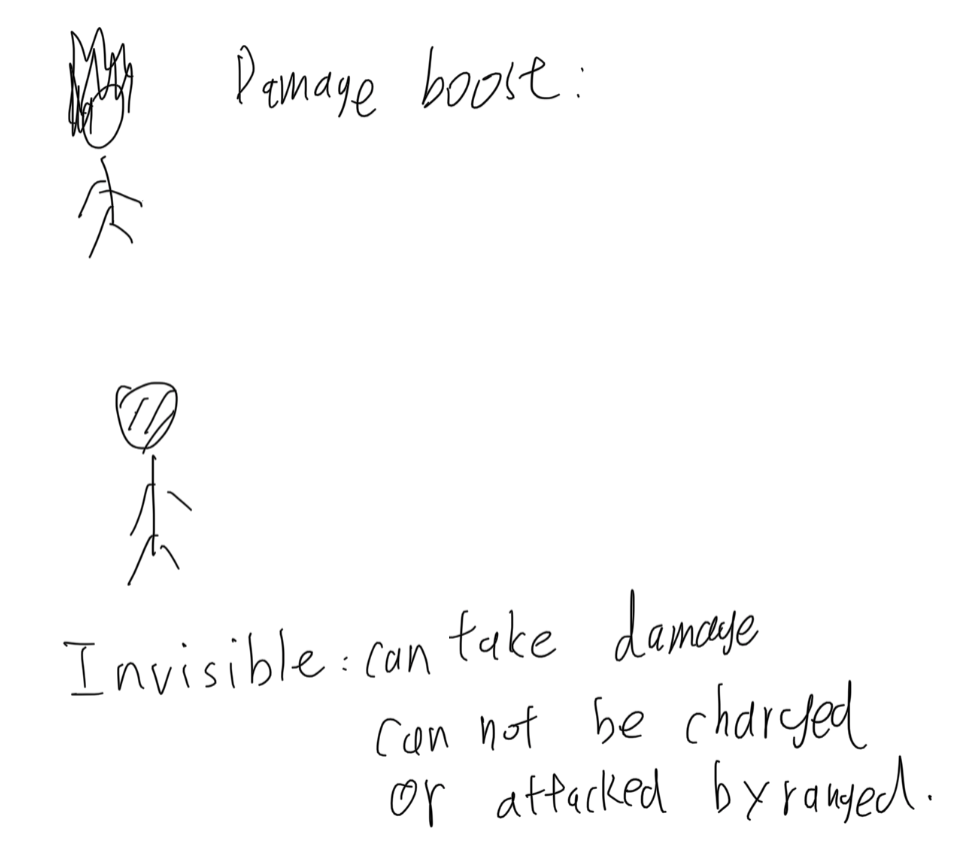 Damage boost:
Invisible: can take damage
can not be charged
or attacked by ranged.